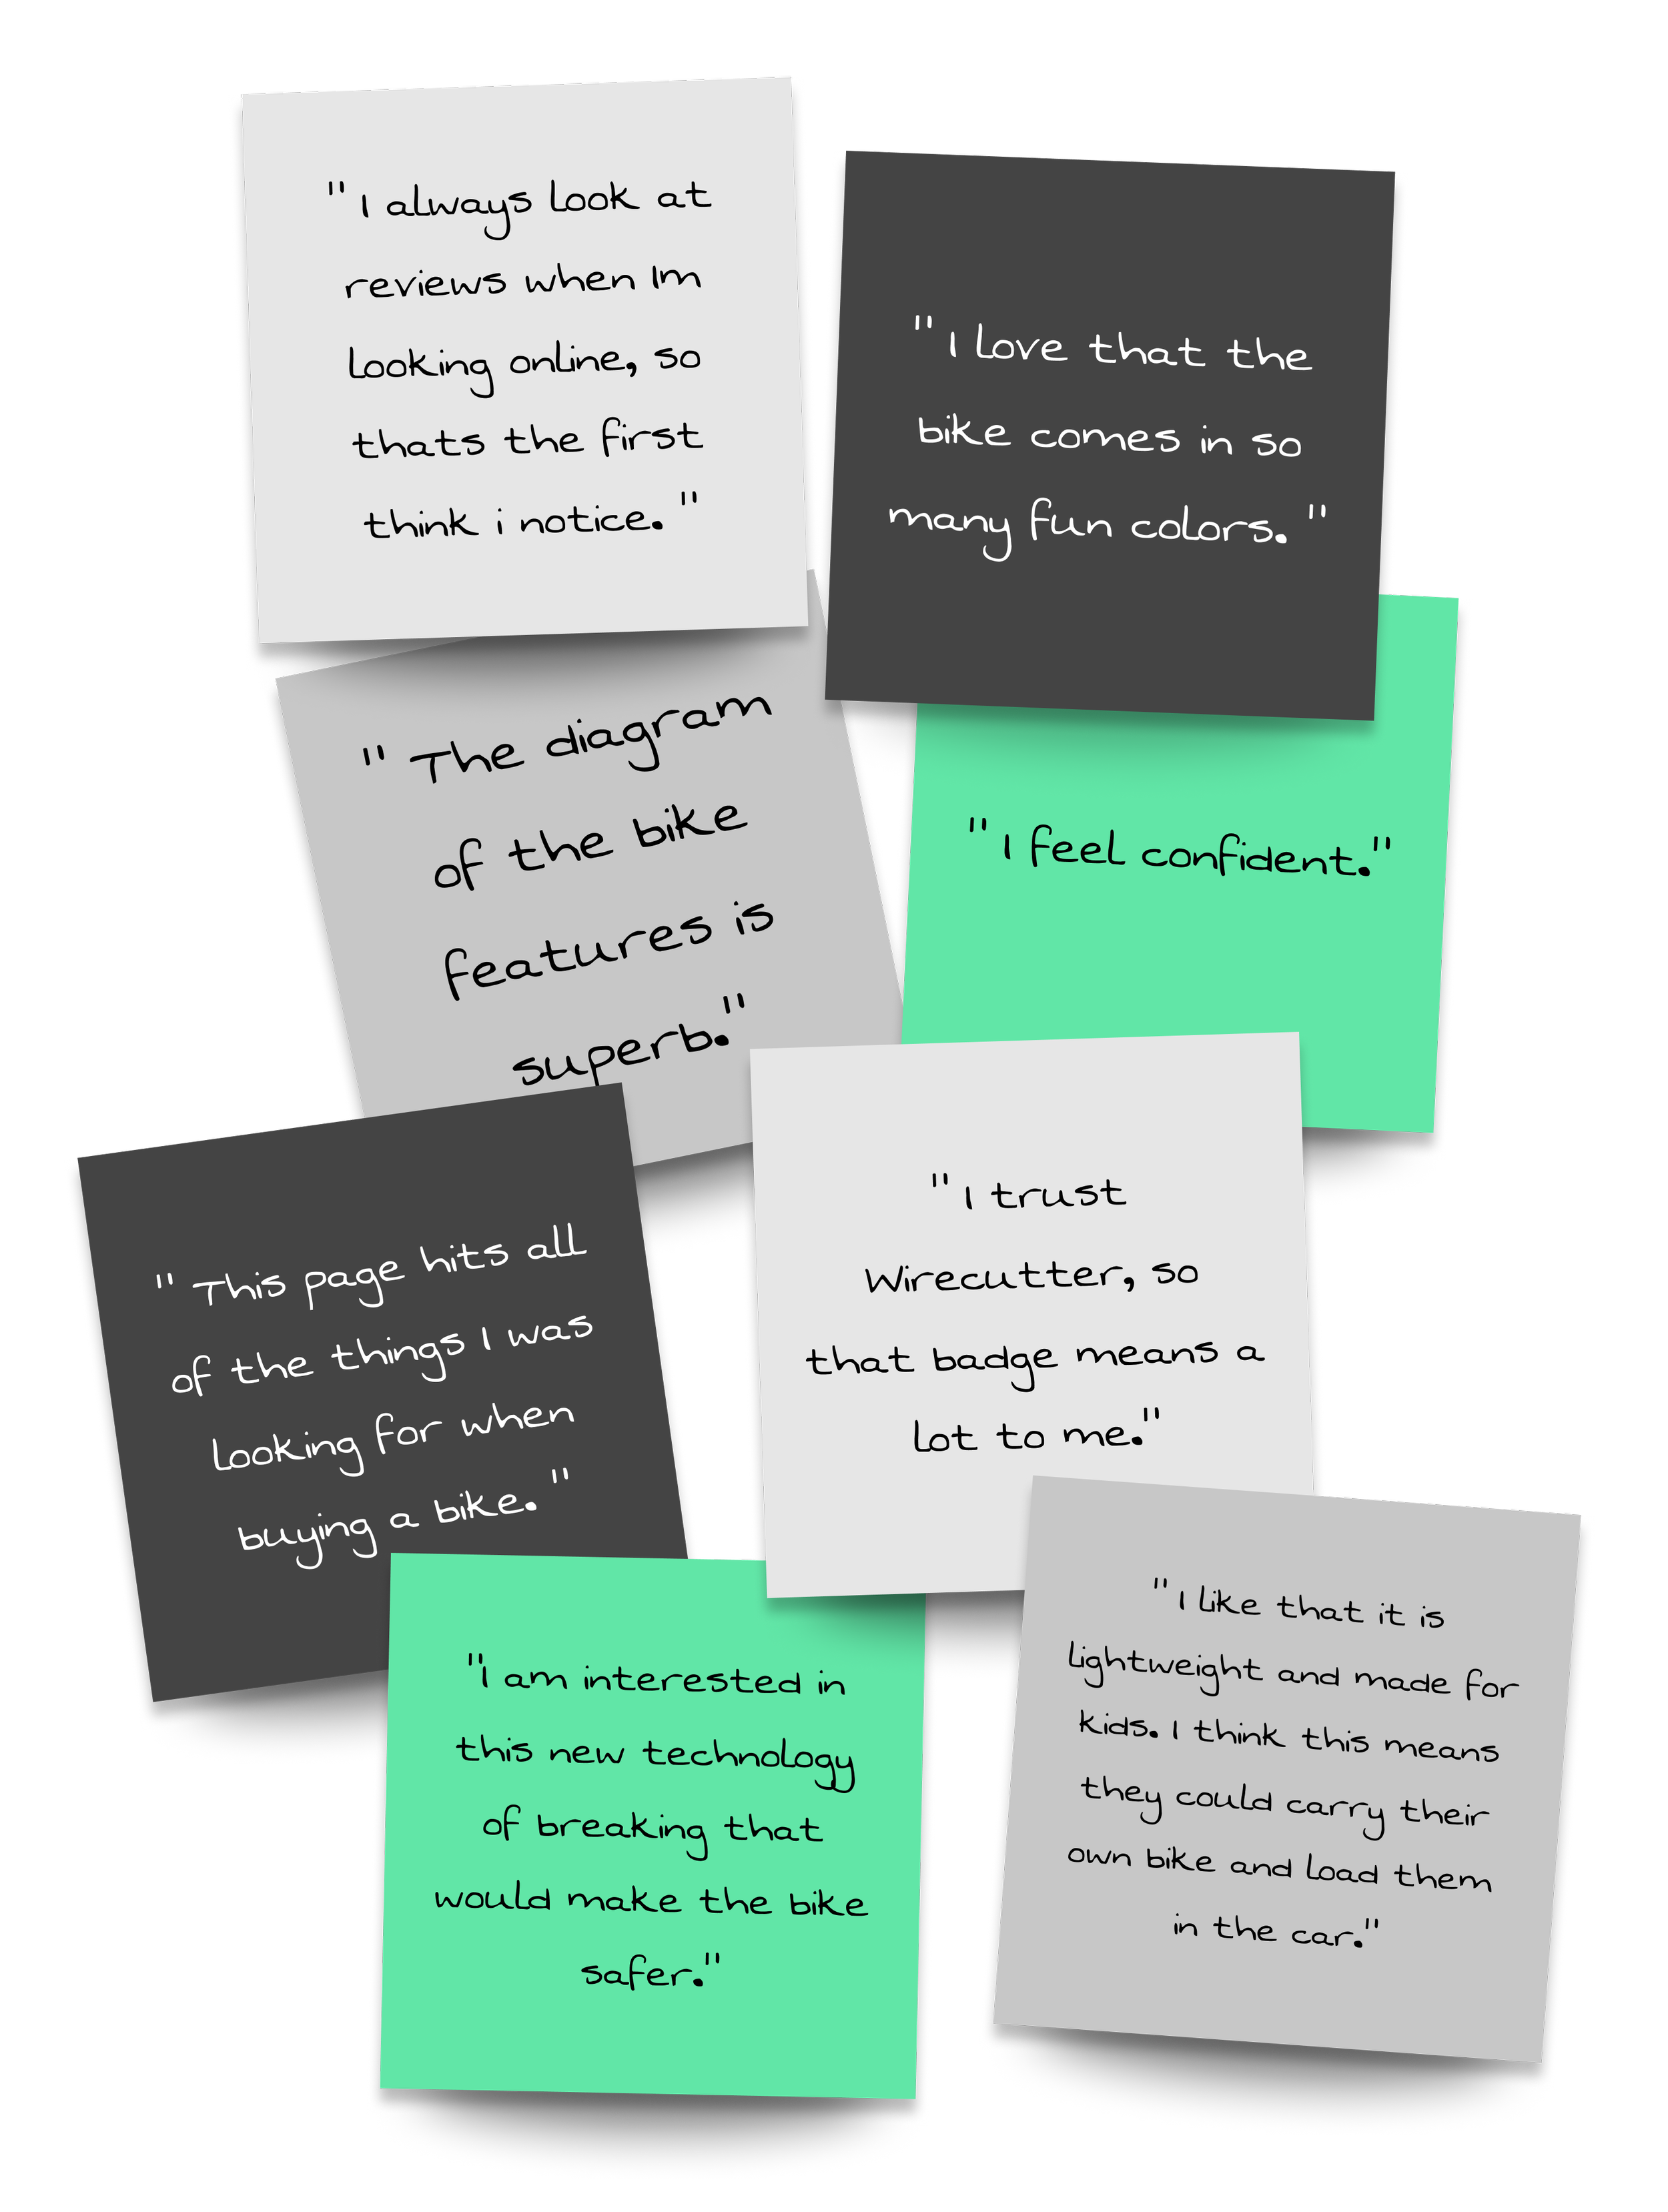 "I always look at
reviews when Im
looking online, so
thats the first
think i notice."
"I love that the
bike comes in so
many fun colors."
"The diagram
of the bike
features is
superb."
"I feel confident."
"This page hits all
of the things I was
looking for when
buying a bike."
"I trust
Wirecutter, so
that badge means a
lot to me."
"I am interested in
this new technology
of breaking that
would make the bike
safer."
"I like that it is
lightweight and made for
kids. I think this means
they could carry their
own bike and load them
in the car."